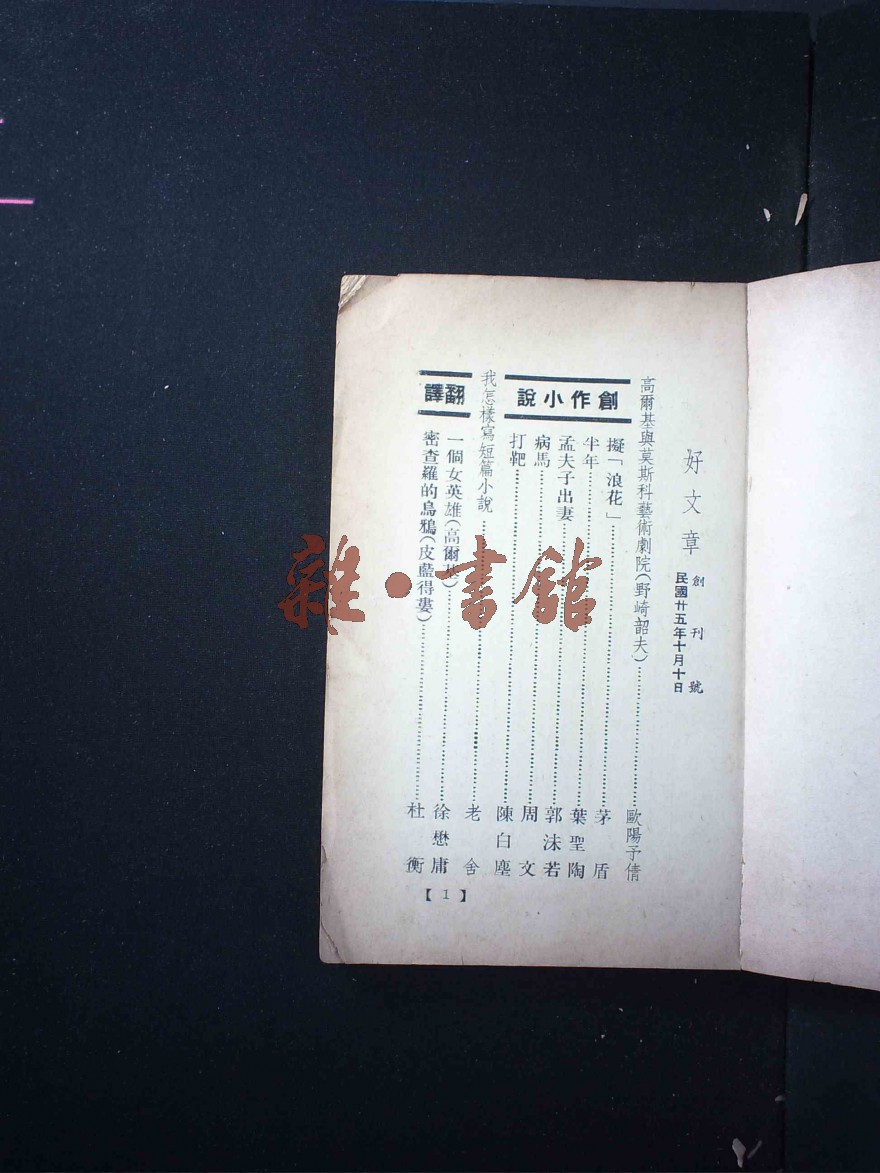 好文章
創刊號
民國廿五年十月十日
高爾基與莫斯科藝術劇院(野崎韶夫)……歐陽予倩
創作小說
擬「浪花」……茅盾
半年……葉聖陶
孟夫子出妻……郭沫若
病馬……周文
打靶……陳白塵
我怎樣寫短篇小說……老舍
翻譯
一個女英雄(高爾基)……徐懋庸
密查羅的烏鴉(皮藍得婁)……杜衡
【1】
雜·書館